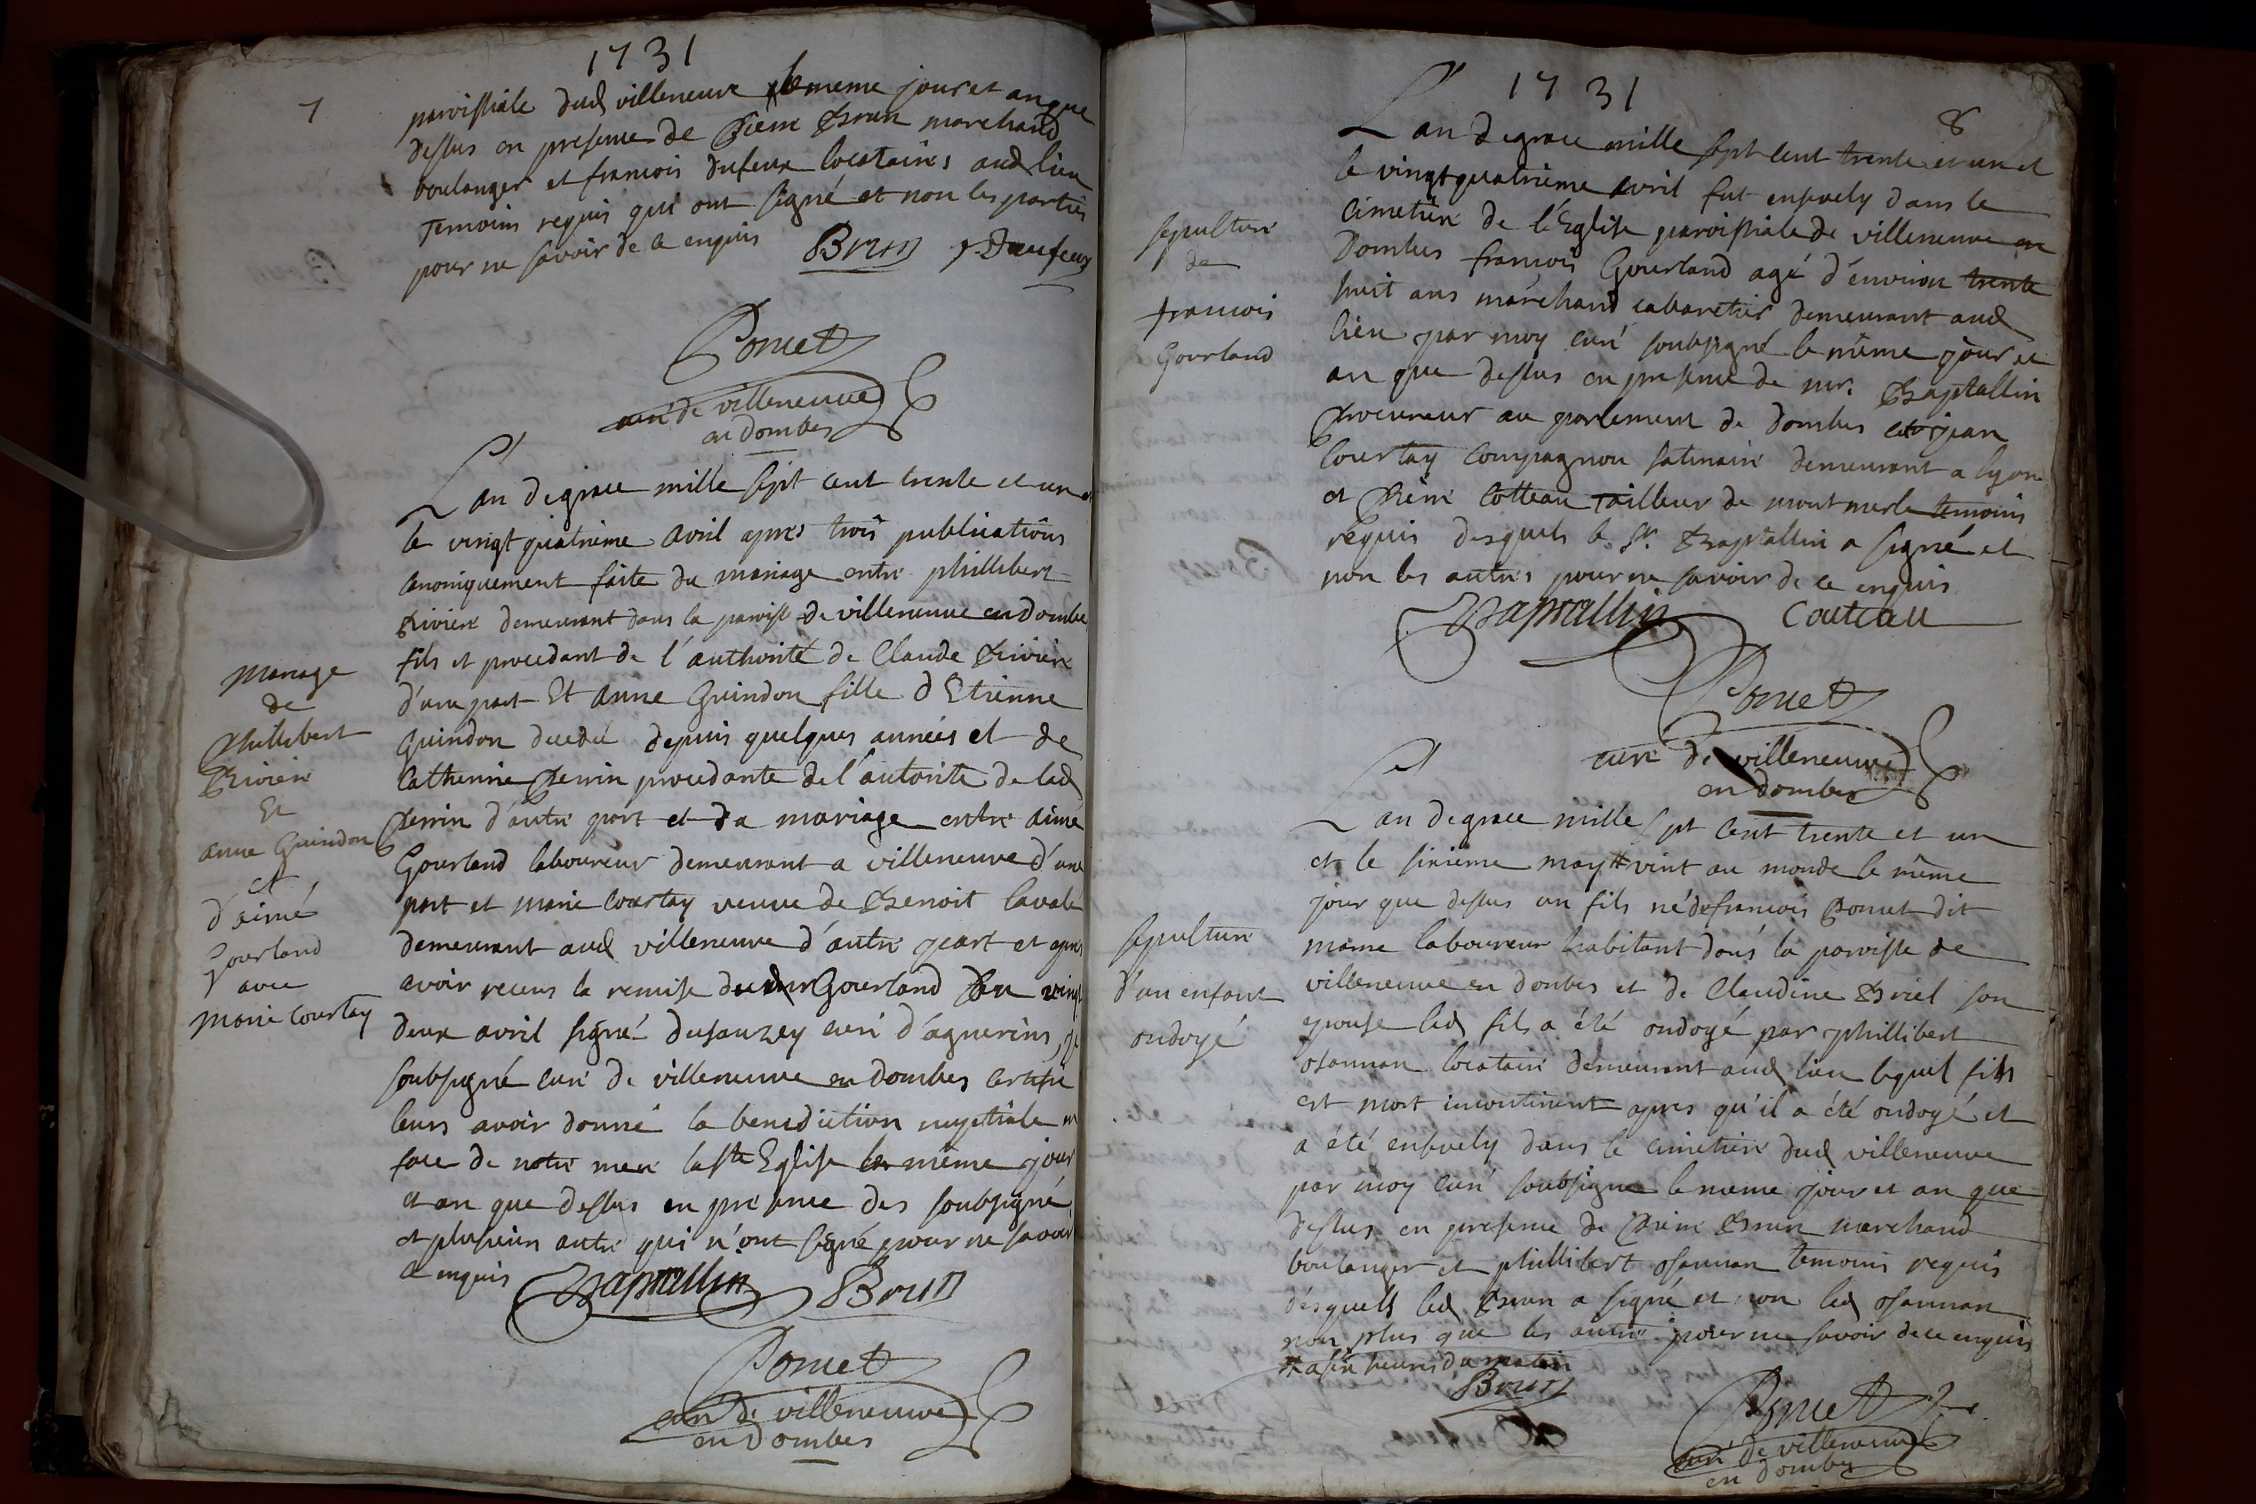 1731
7
paroissiale dud villeneuve le meme jour et an que
dessus en presence de Pierre Brun marchand
boulanger et francois dufeux locataires aud lieu
Temoins requis qui ont signé et non les parties
pour ne savoir de ce enquis Brun Daufeux
Poncet
curé de villeneuve
en dombes
L'an de grace mille sept cent trente et un et
le vingt quatrieme avril apres trois publications
canoniquement faite du mariage entre phillibert
Riviere demeurant dans la paroisse de villeneuve en dombe
fils et procedant de l'authorité de Claude Riviere
d'une part Et anne Guindon fille d'Etienne
Guindon decedé depuis quelques années et de
Catherine Perrin procedante de l'autorite de lad
Perrin d'autre part et du mariage entre aimé
Gourland laboureur demeurant a villeneuve d'une
part et marie Courtay veuve de Benoit lavale
demeurant aud villeneuve d'autre part et apres
avoir receus la remise dud Gourland du vingt
deux avril signé dusauzey curé d'agnerins, je
soubsigné curé de villeneuve en dombes certifie
leurs avoir donné la benediction nuptiale en
face de notre mere la ste Eglise le même jour
et an que dessus en presence des soubsigné
et plusieurs autre qui n'ont signé pour ne savoir
de enquis Baptallin Brun
Poncet
curé de villeneuve
en Dombes
Mariage
de
Phillibert
Riviere
Et
anne Guindon
et
d'aimé
Gourland
avec
Marie Courtay
1731
8
L'an de grace mille sept cent trente et un et
le vingt quatrieme avril fut ensevely dans le
cimetiere de l'Eglise paroissiale de villeneuve en
Dombes francois Gourland agé d'environ trente
huit ans marchand cabaretier demeurant aud
lieu par moy curé soubsigné le même jour et
an que dessus en presence de mr. Baptallin
Procureur au parlement de Dombes et jean
Courtay compagnon satinaire demeurant a lyon
et Pierre Cotteau Tailleur de montmerle temoins
requis desquels le Sr. Baptallin a signé et
non les autres pour ne savoir de ce enquis
Baptallin Couteau
Poncet
curé de villeneuve
en dombes
L'an de grace mille sept cent trente et un
et le sixieme may # vint au monde le même
jour que dessus un fils né de francois Poncet dit
mome laboureur habitant dans la paroisse de
villeneuve en dombes et de Claudine Briel son
epouse led fils a été ondoyé par phillibert
osannan locataire demeurant aud lieu lequel fils
est mort incontinent apres qu'il a été ondoyé et
a été ensevely dans le cimetiere dud villeneuve
par moy curé soubsigné le meme jour et an que
dessus en presence de Pierre Brun marchand
boulanger et phillibert osannan temoins requis
desquels led Brun a signé et non led osannan
non plus que les autre pour ne savoir de ce enquis
# a six heures du matin
Brun
Poncet
curé de villeneuve
en dombes
sepulture
de
francois
Gourland
sepulture
d'un enfant
ondoyé